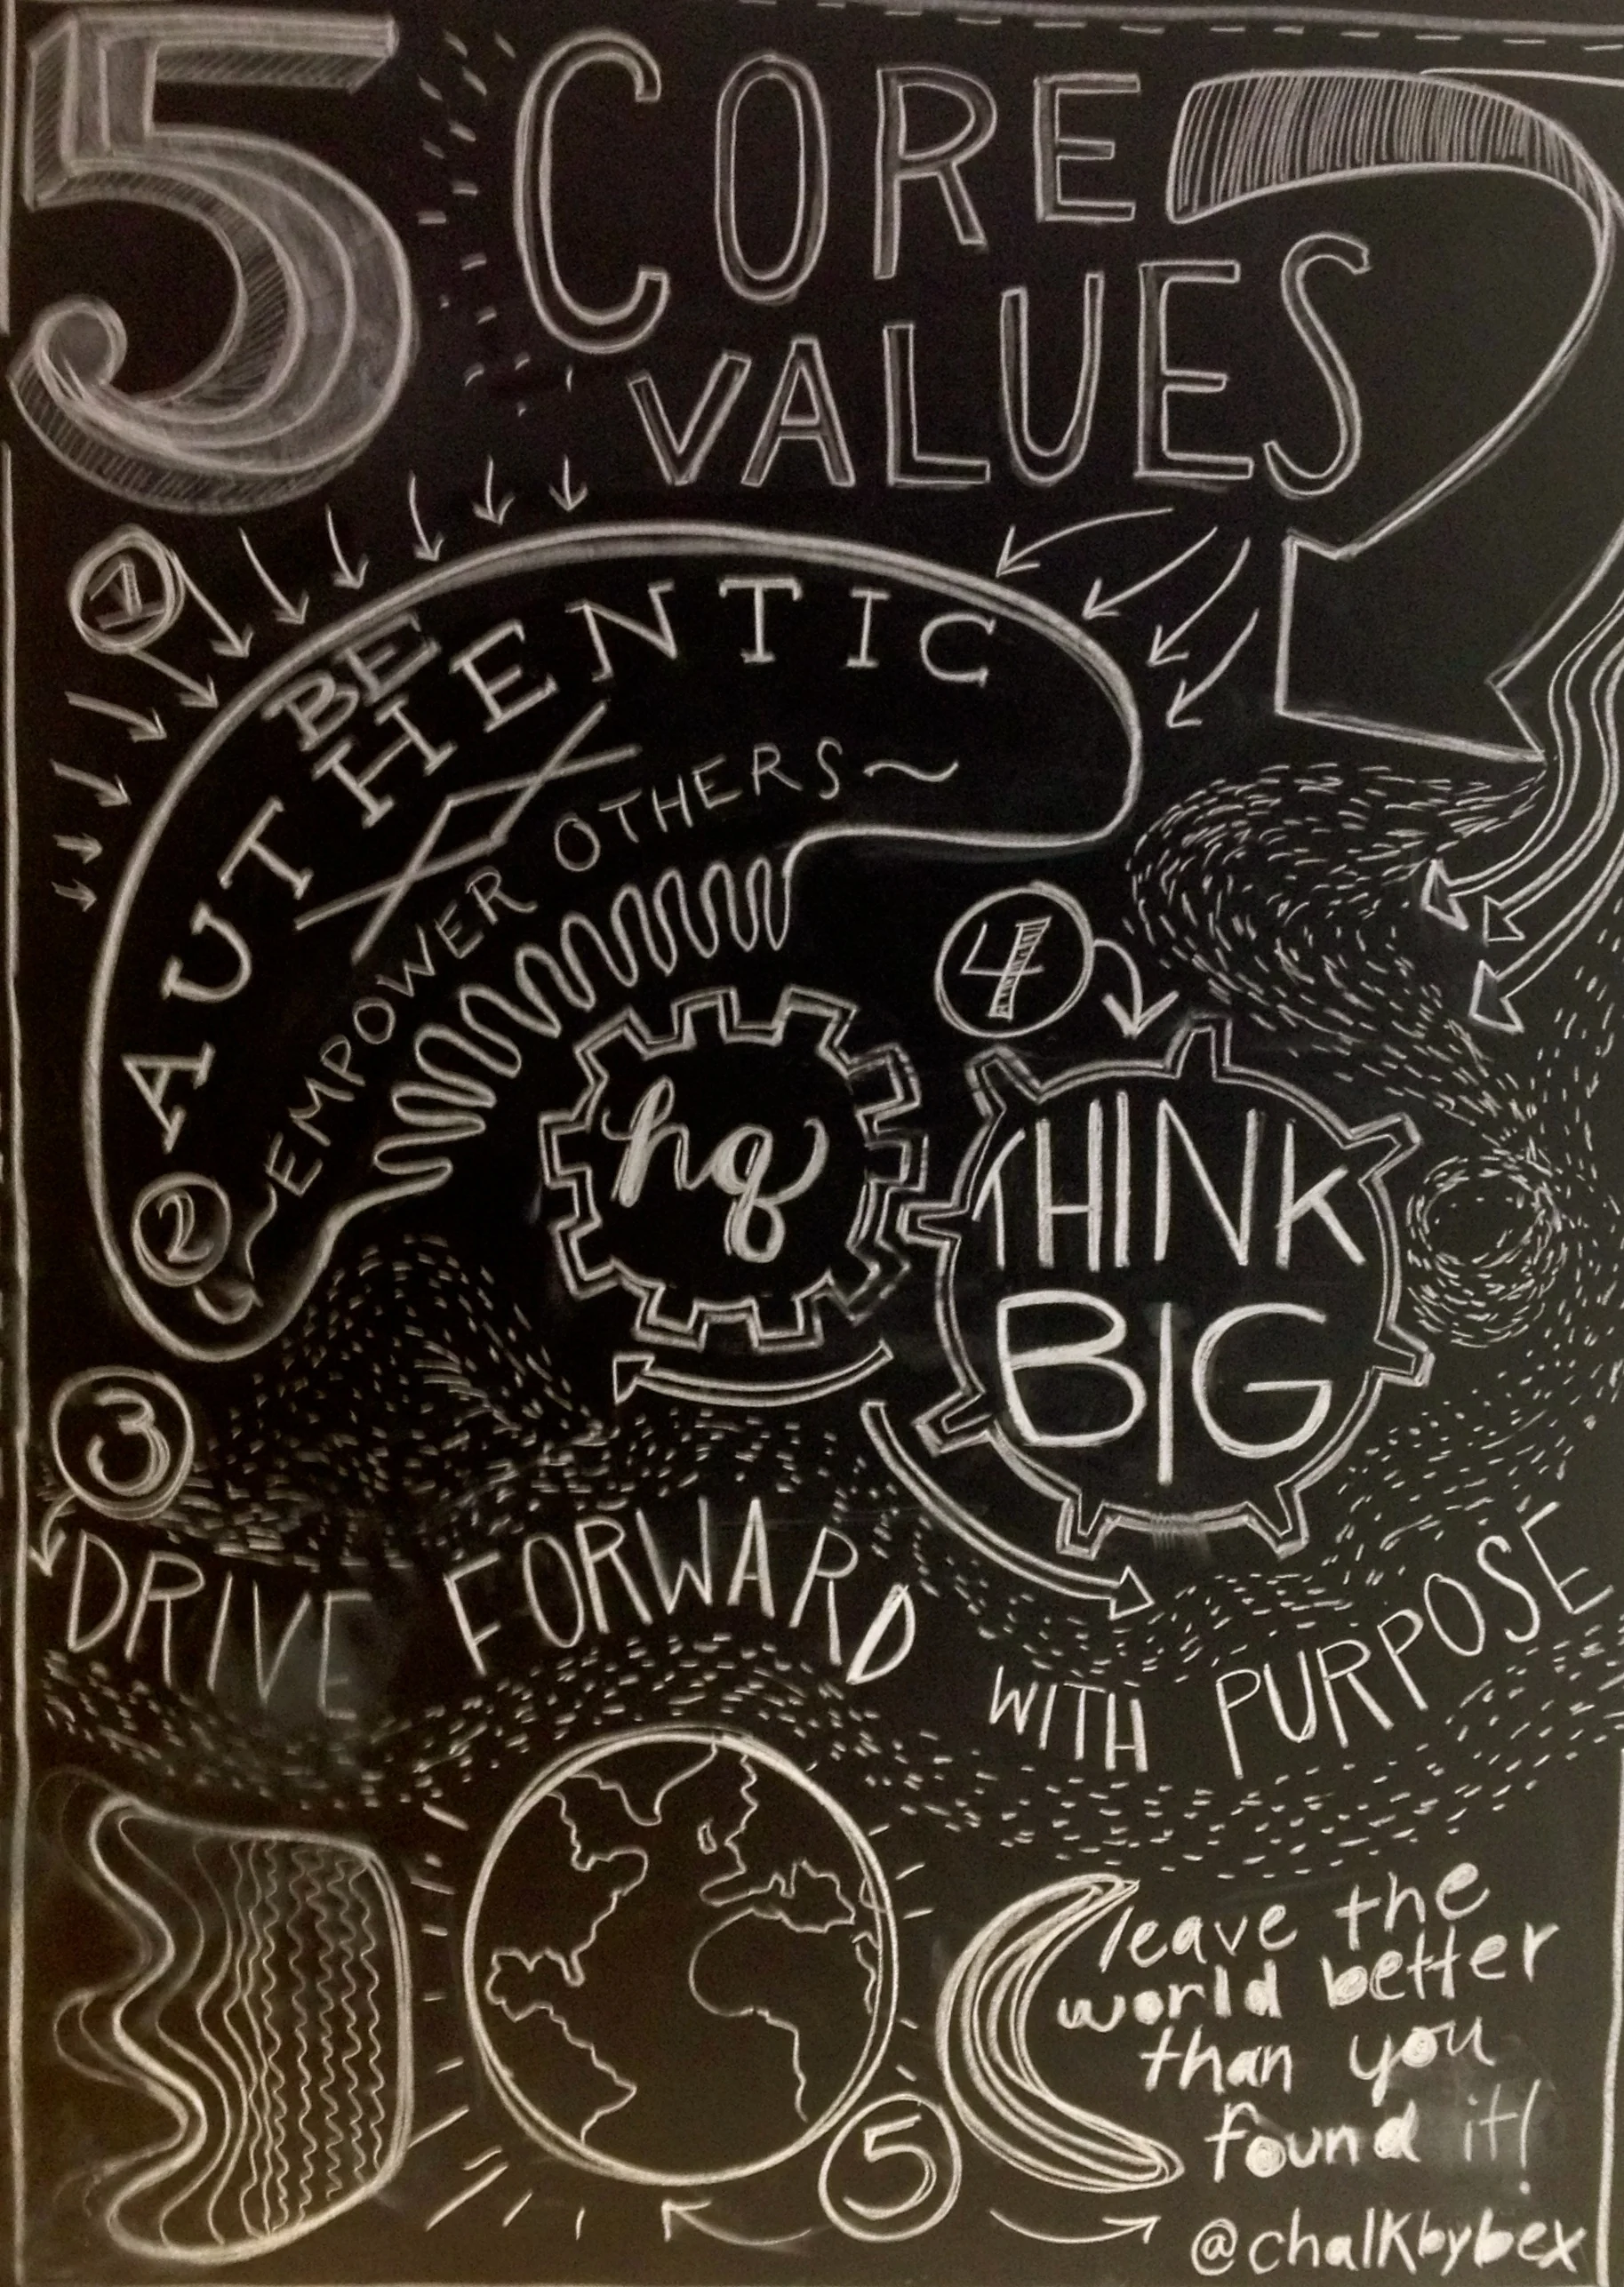 5 CORE
VALUES
1
BE
AUTHENTIC
2
EMPOWER OTHERS~
hq
4
THINK
BIG
3
DRIVE FORWARD
WITH PURPOSE
5
leave the
world better
than you
found it!
@chalkbybex